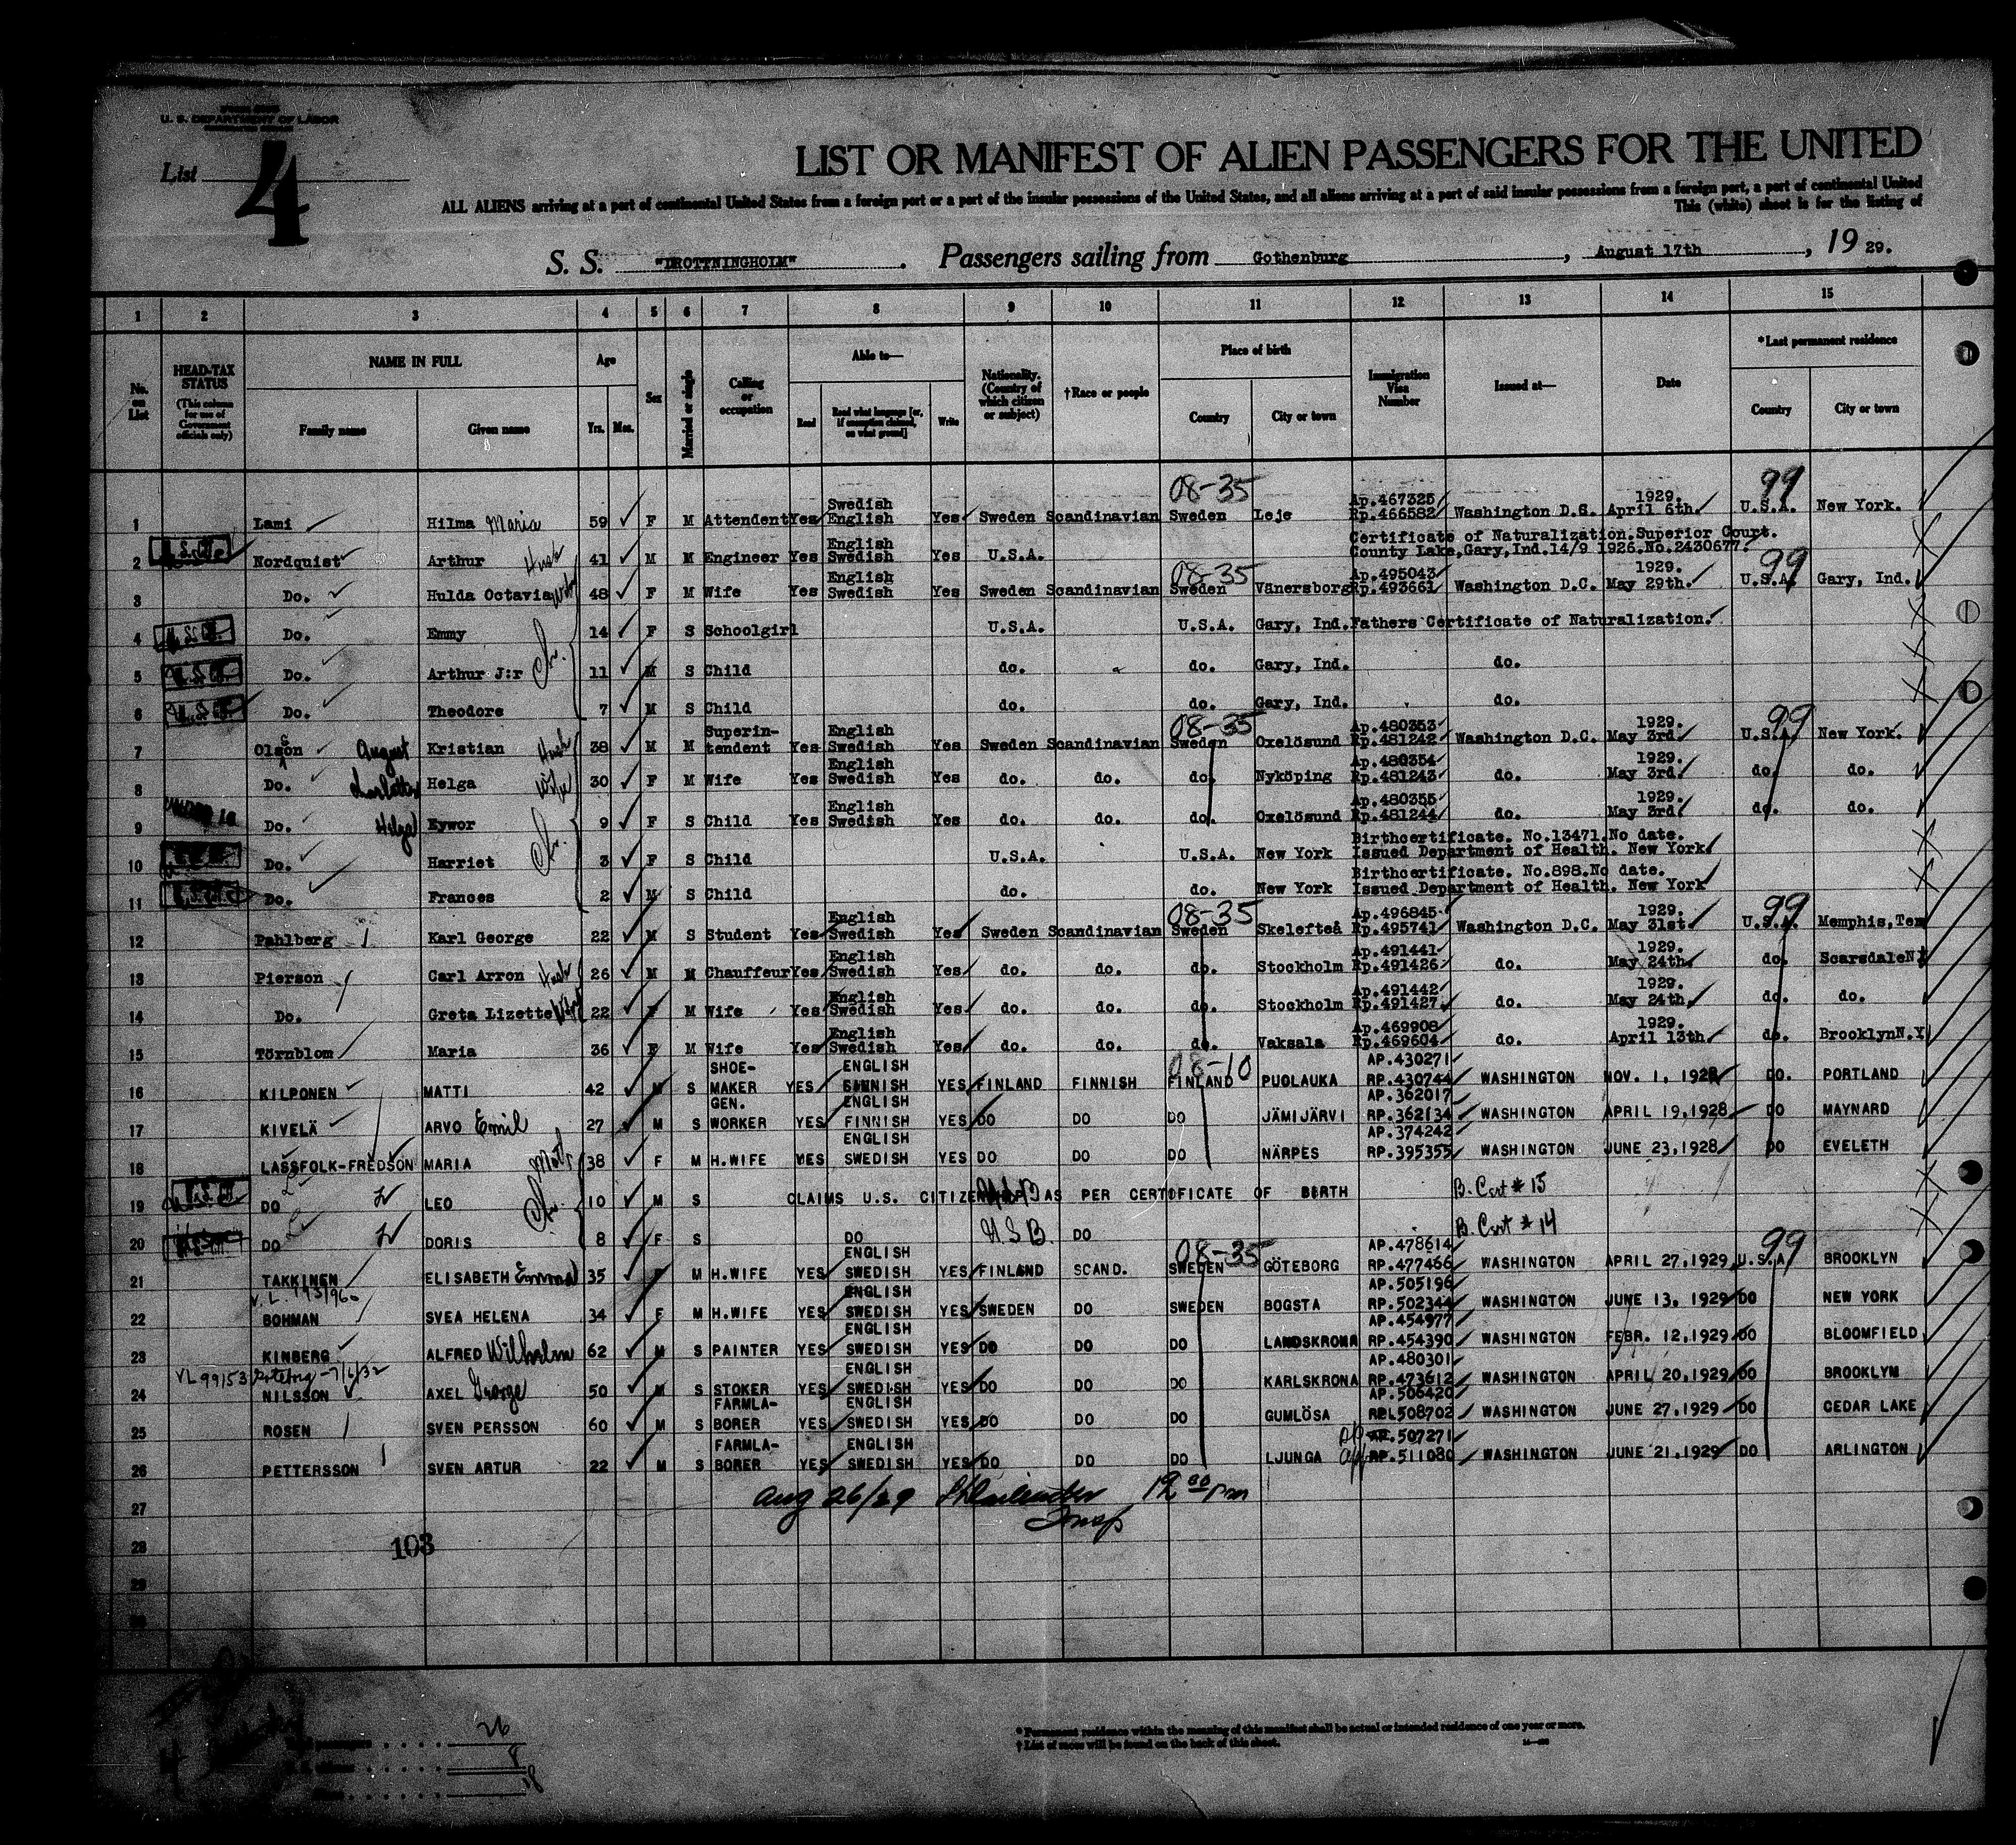 U. S. DEPARTMENT OF LABOR
List 4
LIST OR MANIFEST OF ALIEN PASSENGERS FOR THE UNITED
ALL ALIENS arriving at a port of continental United States from a foreign port or a port of the insular possessions of the United States, and all aliens arriving at a port of said insular possessions from a foreign port, a port of continental United
This (white) sheet is for the listing of
S. S. "DROTTNINGHOLM". Passengers sailing from Gothenburg, August 17th, 1929.
1 2 3 4 5 6 7 8 9 10 11 12 13 14 15
No. on List
HEAD-TAX STATUS (This column for use of Government officials only)
NAME IN FULL Family name Given name
Age Yrs. Mos.
Sex
Married or single
Calling or occupation
Able to— Read Read what language [or, if exemption claimed, on what ground] Write
Nationality. (Country of which citizen or subject)
†Race or people
Place of birth Country City or town
Immigration Visa Number
Issued at—
Date
*Last permanent residence Country City or town
08-35 99
1 Lami Hilma Maria 59 F M Attendent Yes Swedish English Yes Sweden Scandinavian Sweden Leje Ap.467325 Rp.466582 Washington D.C. 1929. April 6th. U.S.A. New York.
2 Nordquist Arthur Husb 41 M M Engineer Yes English Swedish Yes U.S.A. Certificate of Naturalization.Superior Court. County Lake,Gary,Ind.14/9 1926.No.2430677.
08-35 99
3 Do. Hulda Octavia Wife 48 F M Wife Yes English Swedish Yes Sweden Scandinavian Sweden Vänersborg Ap.495043 Rp.493661 Washington D.C. 1929. May 29th. U.S.A. Gary, Ind.
4 Do. Emmy 14 F S Schoolgirl U.S.A. U.S.A. Gary, Ind. Fathers Certificate of Naturalization.
5 Do. Arthur J:r Ch. 11 M S Child do. do. Gary, Ind. do.
6 Do. Theodore 7 M S Child do. do. Gary, Ind. do.
08-35 99
7 Olson August Kristian Husb 38 M M Superin-tendent Yes English Swedish Yes Sweden Scandinavian Sweden Oxelösund Ap.480353 Rp.481242 Washington D.C. 1929. May 3rd. U.S.A. New York.
8 Do. Charlotta Helga Wife 30 F M Wife Yes English Swedish Yes do. do. do. Nyköping Ap.480354 Rp.481243 do. 1929. May 3rd. do. do.
9 UNDER 16 Do. Helga Eywor 9 F S Child Yes English Swedish Yes do. do. do. Oxelösund Ap.480355 Rp.481244 do. 1929. May 3rd. do. do.
10 Do. Harriet Ch. 3 F S Child U.S.A. U.S.A. New York Birthcertificate. No.13471.No date. Issued Department of Health. New York
11 Do. Frances 2 M S Child do. do. New York Birthcertificate. No.898.No date. Issued Department of Health. New York
08-35 99
12 Pahlberg Karl George 22 M S Student Yes English Swedish Yes Sweden Scandinavian Sweden Skelefteå Ap.496845 Rp.495741 Washington D.C. 1929. May 31st. U.S.A. Memphis.Ten
13 Pierson Carl Arron Husb 26 M M Chauffeur Yes English Swedish Yes do. do. do. Stockholm Ap.491441 Rp.491426 do. 1929. May 24th. do. Scarsdale N.Y
14 Do. Greta Lizette Wife 22 F M Wife Yes English Swedish Yes do. do. do. Stockholm Ap.491442 Rp.491427 do. 1929. May 24th. do. do.
15 Törnblom Maria 36 F M Wife Yes English Swedish Yes do. do. do. Vaksala Ap.469908 Rp.469604 do. 1929. April 13th. do. Brooklyn N.Y
08-10
16 KILPONEN MATTI 42 M S SHOE-MAKER YES ENGLISH FINNISH YES FINLAND FINNISH FINLAND PUOLAUKA AP.430271 RP.430744 WASHINGTON NOV. 1, 1928 DO. PORTLAND
17 KIVELÄ ARVO Emil 27 M S GEN. WORKER YES ENGLISH FINNISH YES DO DO DO JÄMIJÄRVI AP.362017 RP.362134 WASHINGTON APRIL 19,1928 DO MAYNARD
18 LASSFOLK-FREDSON MARIA Moth 38 F M H.WIFE YES ENGLISH SWEDISH YES DO DO DO NÄRPES AP.374242 RP.395355 WASHINGTON JUNE 23,1928 DO EVELETH
19 DO LEO Ch. 10 M S CLAIMS U.S. CITIZENSHIP AS PER CERTIFICATE OF BIRTH U.S.B. B. Cert # 15
20 DO DORIS 8 F S DO U S B. DO B. Cert # 14
08-35 99
21 TAKKINEN ELISABETH Emma 35 F M H.WIFE YES ENGLISH SWEDISH YES FINLAND SCAND. SWEDEN GÖTEBORG AP.478614 RP.477466 WASHINGTON APRIL 27,1929 U.S.A. BROOKLYN
22 BOHMAN SVEA HELENA 34 F M H.WIFE YES ENGLISH SWEDISH YES SWEDEN DO SWEDEN BOGSTA AP.505196 RP.502344 WASHINGTON JUNE 13, 1929 DO NEW YORK
23 KINBERG ALFRED Wilhelm 62 M S PAINTER YES ENGLISH SWEDISH YES DO DO DO LANDSKRONA AP.454977 RP.454390 WASHINGTON FEBR. 12,1929 DO BLOOMFIELD
VL 99153 Goteborg - 7/6/32
24 NILSSON AXEL George 50 M S STOKER YES ENGLISH SWEDISH YES DO DO DO KARLSKRONA AP.480301 RP.473612 WASHINGTON APRIL 20,1929 DO BROOKLYM
25 ROSEN SVEN PERSSON 60 M S FARMLA-BORER YES ENGLISH SWEDISH YES DO DO DO GUMLÖSA AP.506420 RP.508702 WASHINGTON JUNE 27,1929 DO CEDAR LAKE
26 PETTERSSON SVEN ARTUR 22 M S FARMLA-BORER YES ENGLISH SWEDISH YES DO DO DO LJUNGA AP.507271 RP.511080 WASHINGTON JUNE 21,1929 DO ARLINGTON
27 Aug 26/29 12 00 pm
Insp
28 103
29
30
26
8
18
* Permanent residence within the meaning of this manifest shall be actual or intended residence of one year or more.
† List of races will be found on the back of this sheet.